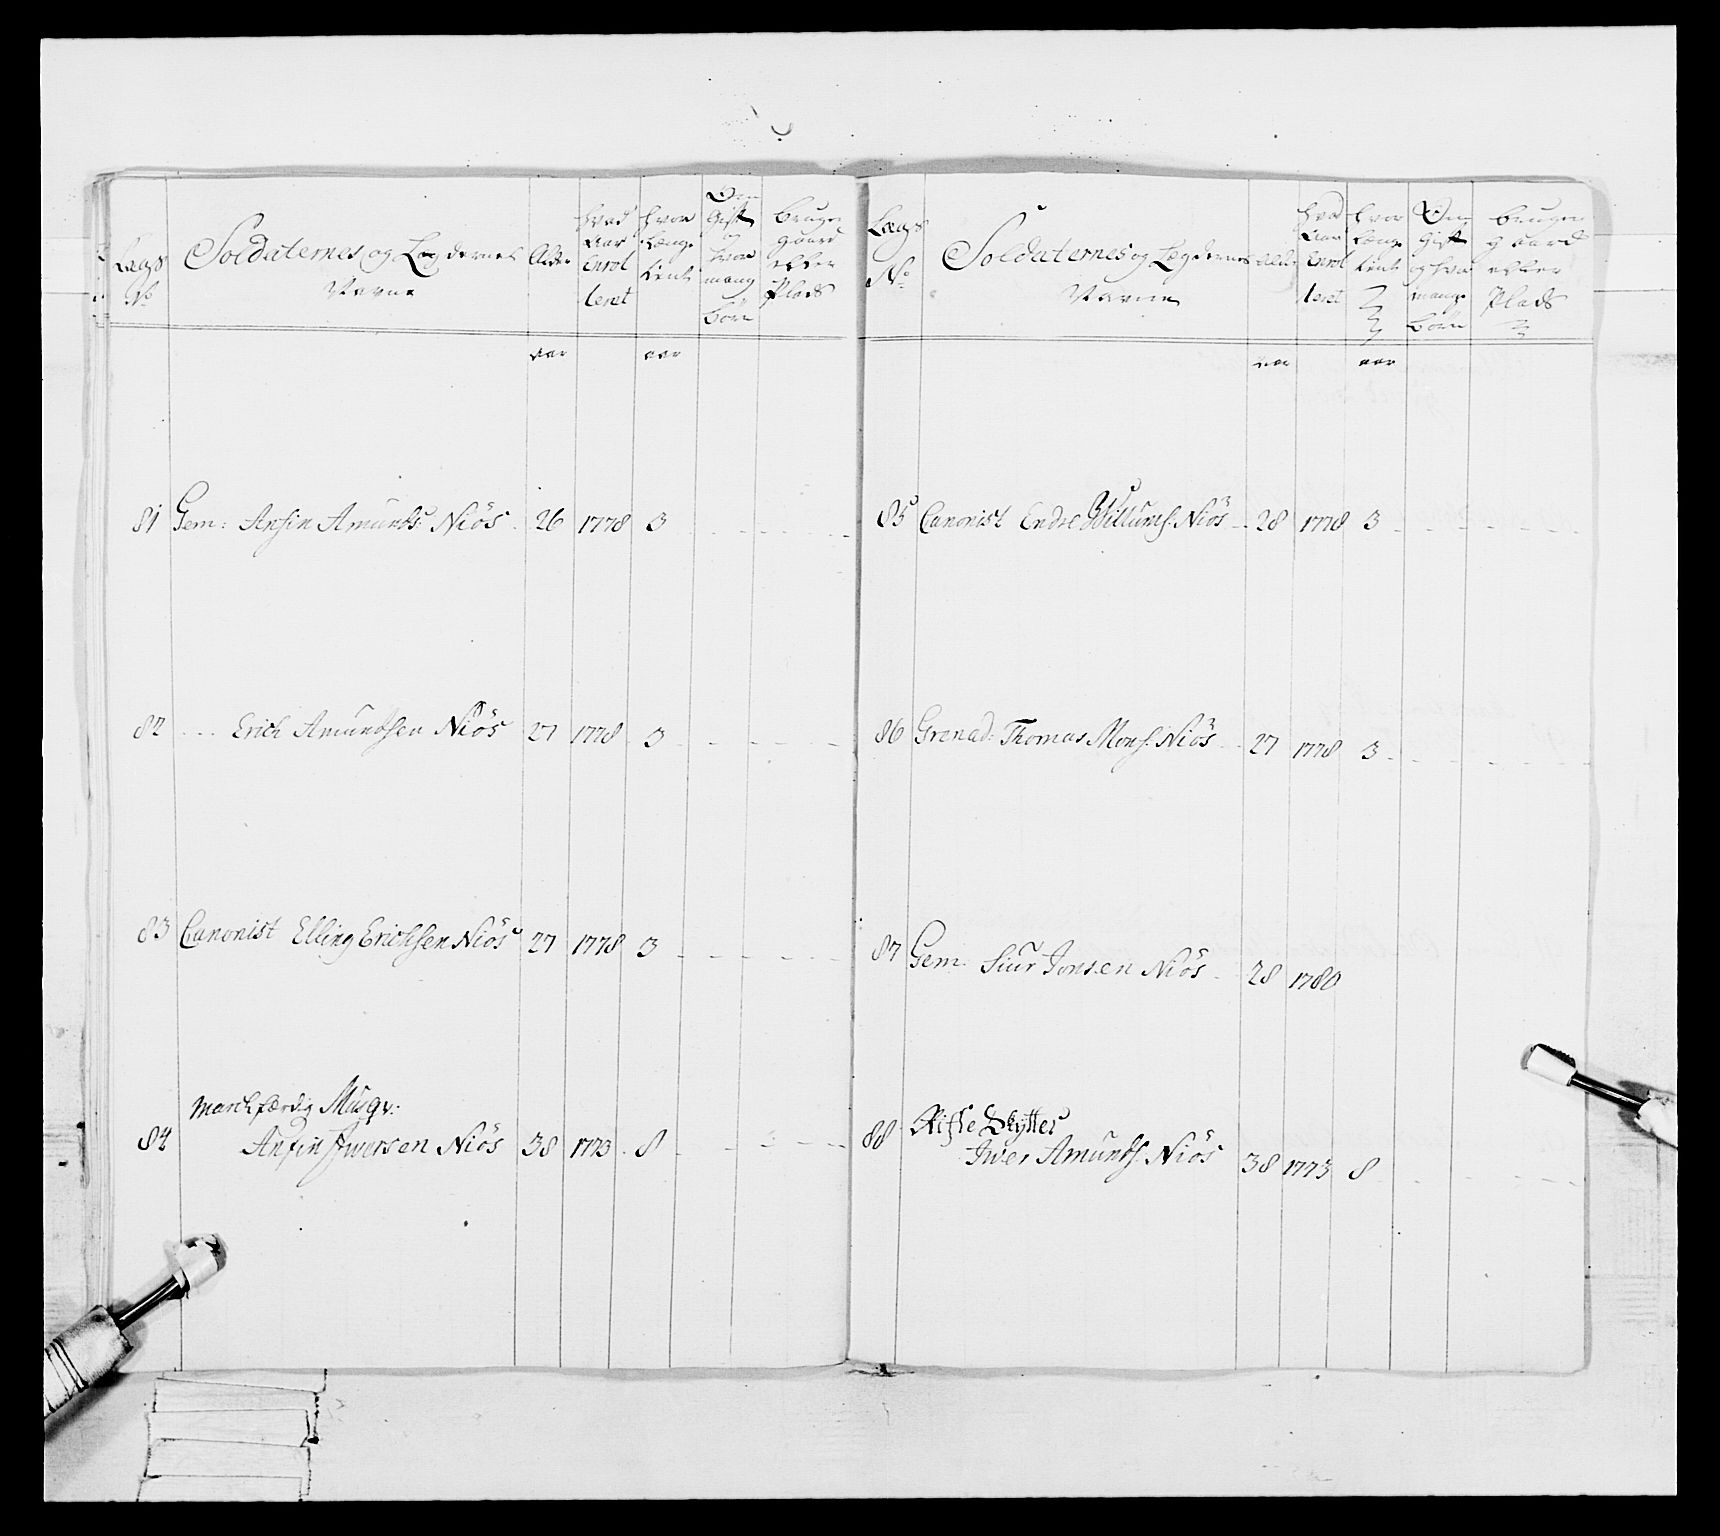 Lægs No Soldaternes og Lægdernes Navne Alder hvad Aar Enrolleret hvor længe tient Om Gift hvor mang börn bruger gaard eller Plads
aar aar
81 Gem: Ansin Amunds: Niös 26 1778 3
82 Erich Amundsen Niös 27 1778 3
83 Canonist Elling Erichsen Niös 27 1778 3
March færdig Musqv:
84 Ansin Iwersen Niös 38 1773 8
Lægs No Soldaternes og Lægdernes Navne Alder hvad Aar Enrolleret hvor længe tient Om Gift og hvor mange börn bruger gaard eller Plads
aar aar
85 Canonist Endre Willums: Niös 28 1778 3
86 Grenad: Thomas Mons: Niös 27 1778 3
87 Gem: Siur Jonsen Niös 28 1780
88 Rifle Skytter
Iwer Amunds: Niös 38 1773 8